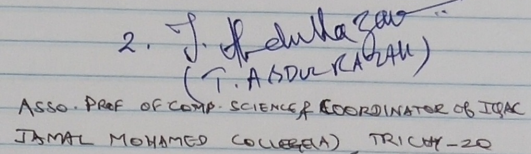 2. T. Abdul Razak
(T. ABDUL RAZAK)
ASSO. PROF OF COMP. SCIENCE & COORDINATOR OF IQAC
JAMAL MOHAMED COLLEGE(A) TRICHY-20